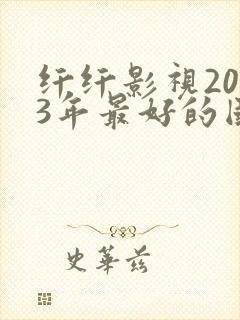 纤纤影视20
3年最好的国
史华兹